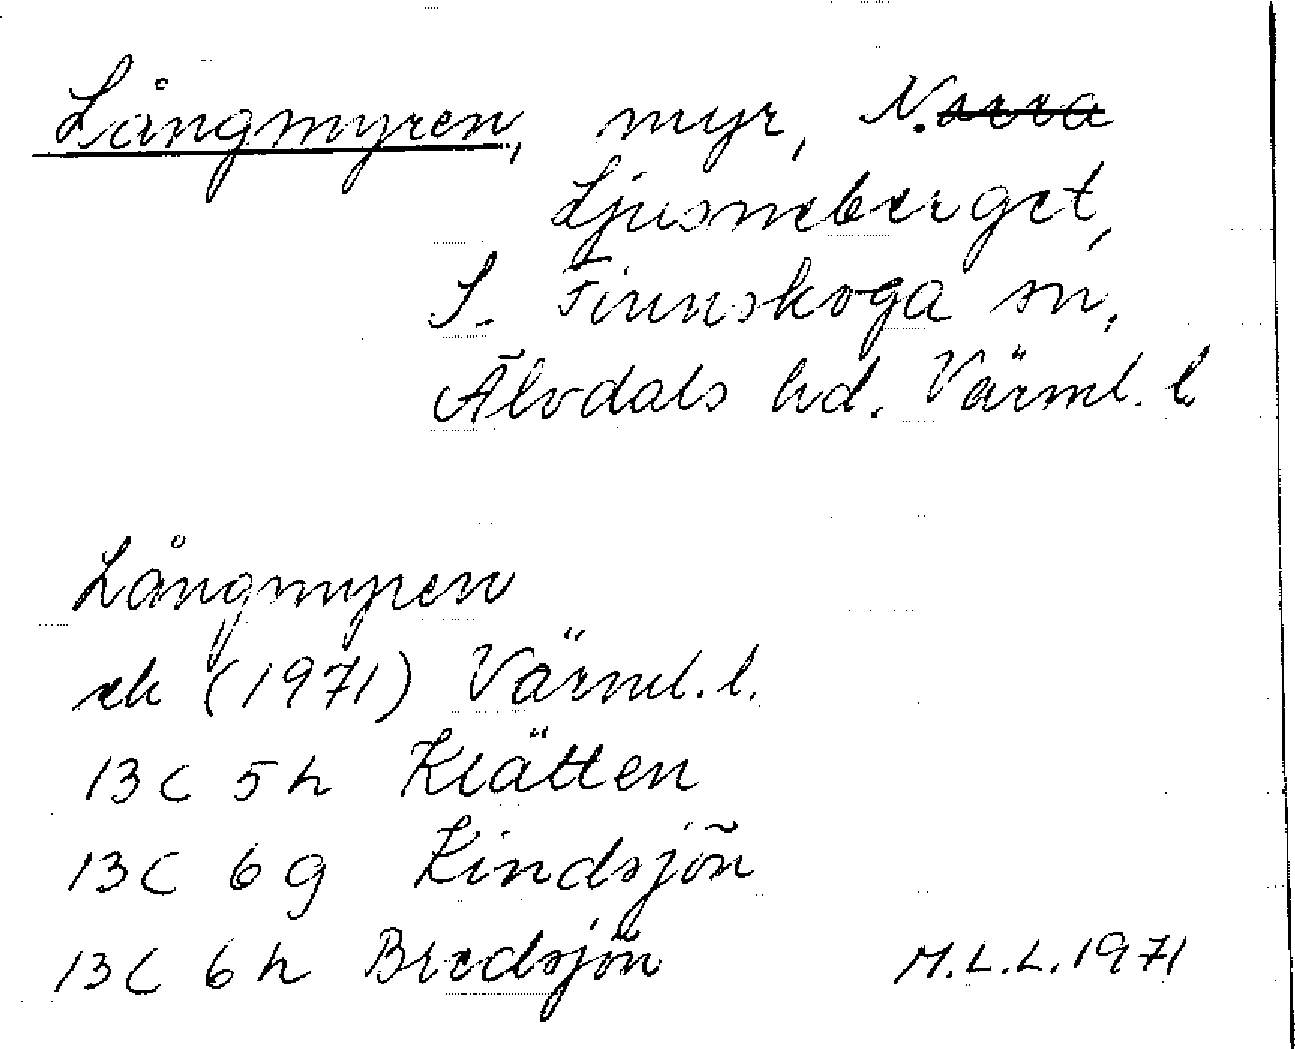 Långmyren, myr, N.
Ljusneberget,
S. Finnskoga sn,
Älvdals hd. Värml. l
Långmyren
ek (1971) Värml. l.
13C 5h Klätten
13C 6g Kindsjön
13C 6h Bredsjön M.L.L. 1971